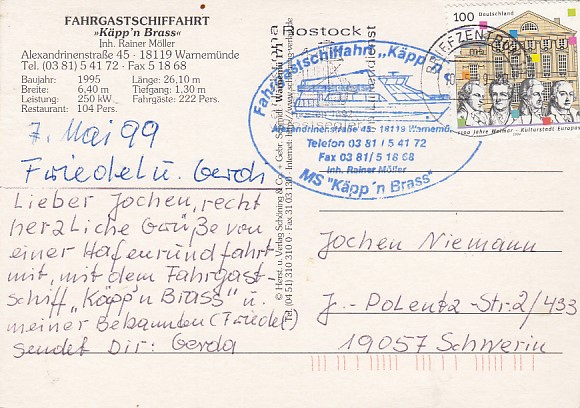 FAHRGASTSCHIFFAHRT
»Käpp'n Brass«
Inh. Rainer Möller
Alexandrinenstraße 45 - 18119 Warnemünde
Tel. (03 81) 5 41 72 · Fax 5 18 68
Baujahr: 1995 Länge: 26,10 m
Breite: 6,40 m Tiefgang: 1,30 m
Leistung: 250 kW Fahrgäste: 222 Pers.
Restaurant: 104 Pers.
7. Mai 99
Friedel u. Gerda
Lieber Jochen, recht
herzliche Grüße von
einer Hafenrundfahrt
mit, mit dem Fahrgast-
schiff "Käpp'n Brass" u.
meiner Bekannten (Friedel)
sendet Dir: Gerda
© Herst. u. Verlag Schöning & Co. + Gebr. Schmidt
Tel. (04 51) 310 310 0 · Fax 31 03 130 · Internet: http://www
Rostock
Fahrgastschiffahrt „Käpp'n
Alexandrinenstraße 45 - 18119 Warnemü.
Telefon 03 81 / 5 41 72
Fax 03 81/ 5 18 68
Inh. Rainer Möller
MS "Käpp'n Brass"
100 Deutschland
BRIEFZENTRUM
1100 Jahre Weimar - Kulturstadt Europas
1999
Jochen Niemann
J.-Polentz-Str.2/433
19057 Schwerin